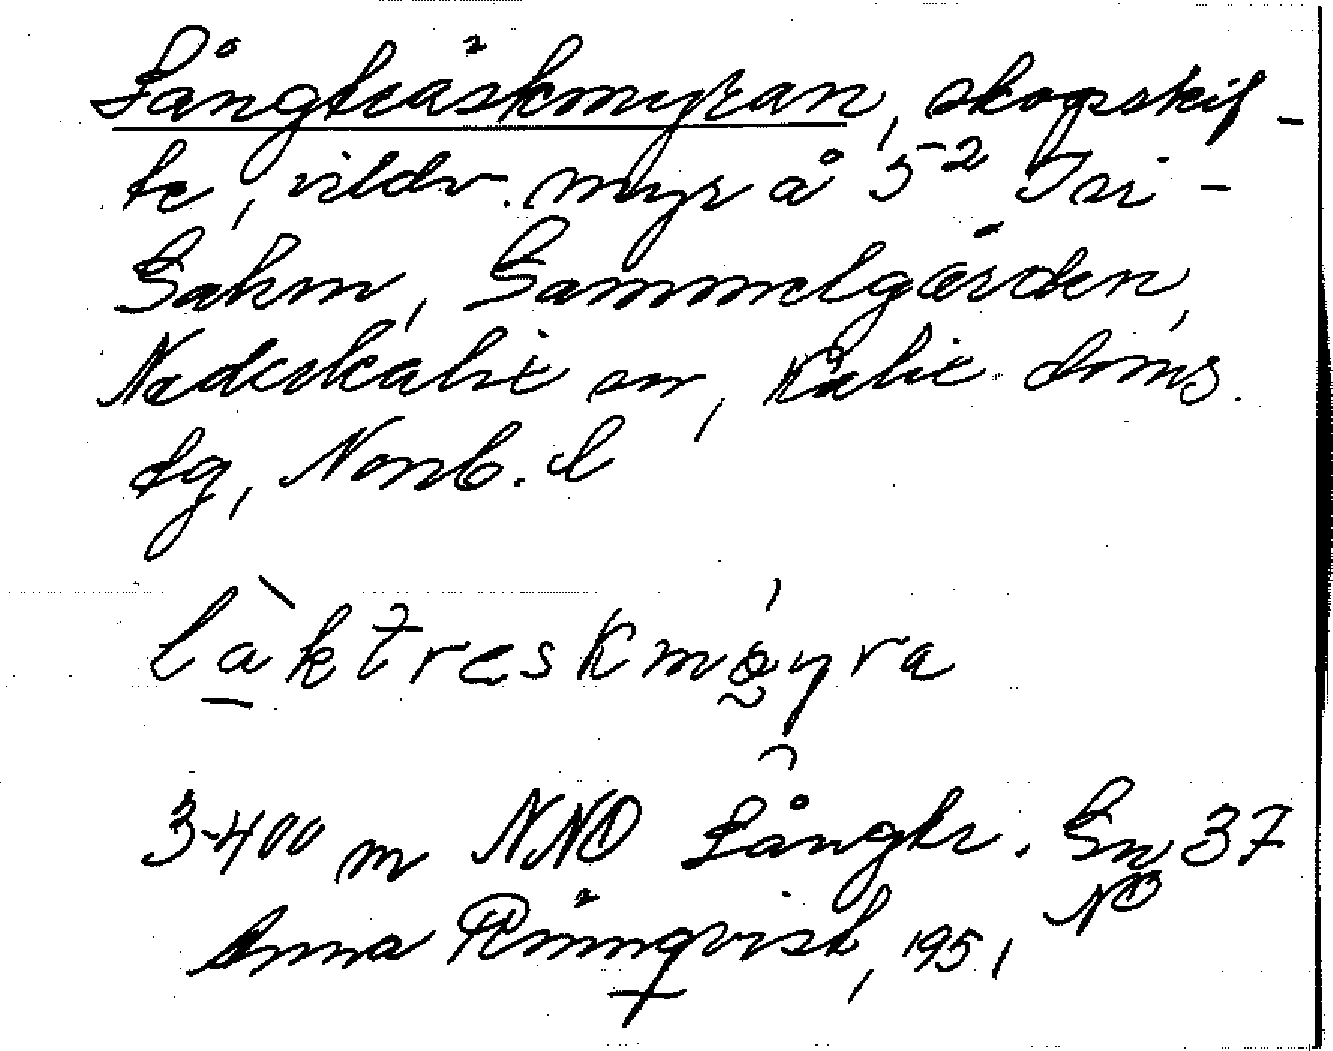 Långträskmyran, skogsskif-
te, vildv. myr å 5² Tri-
Sahm, Gammelgården,
Nederkalix sn, Kalix doms.
dg, Norrb. l
làktreskmøyra
3-400 m NNO Långtr. Gn 37
NO
Anna Rönnqvist, 1951